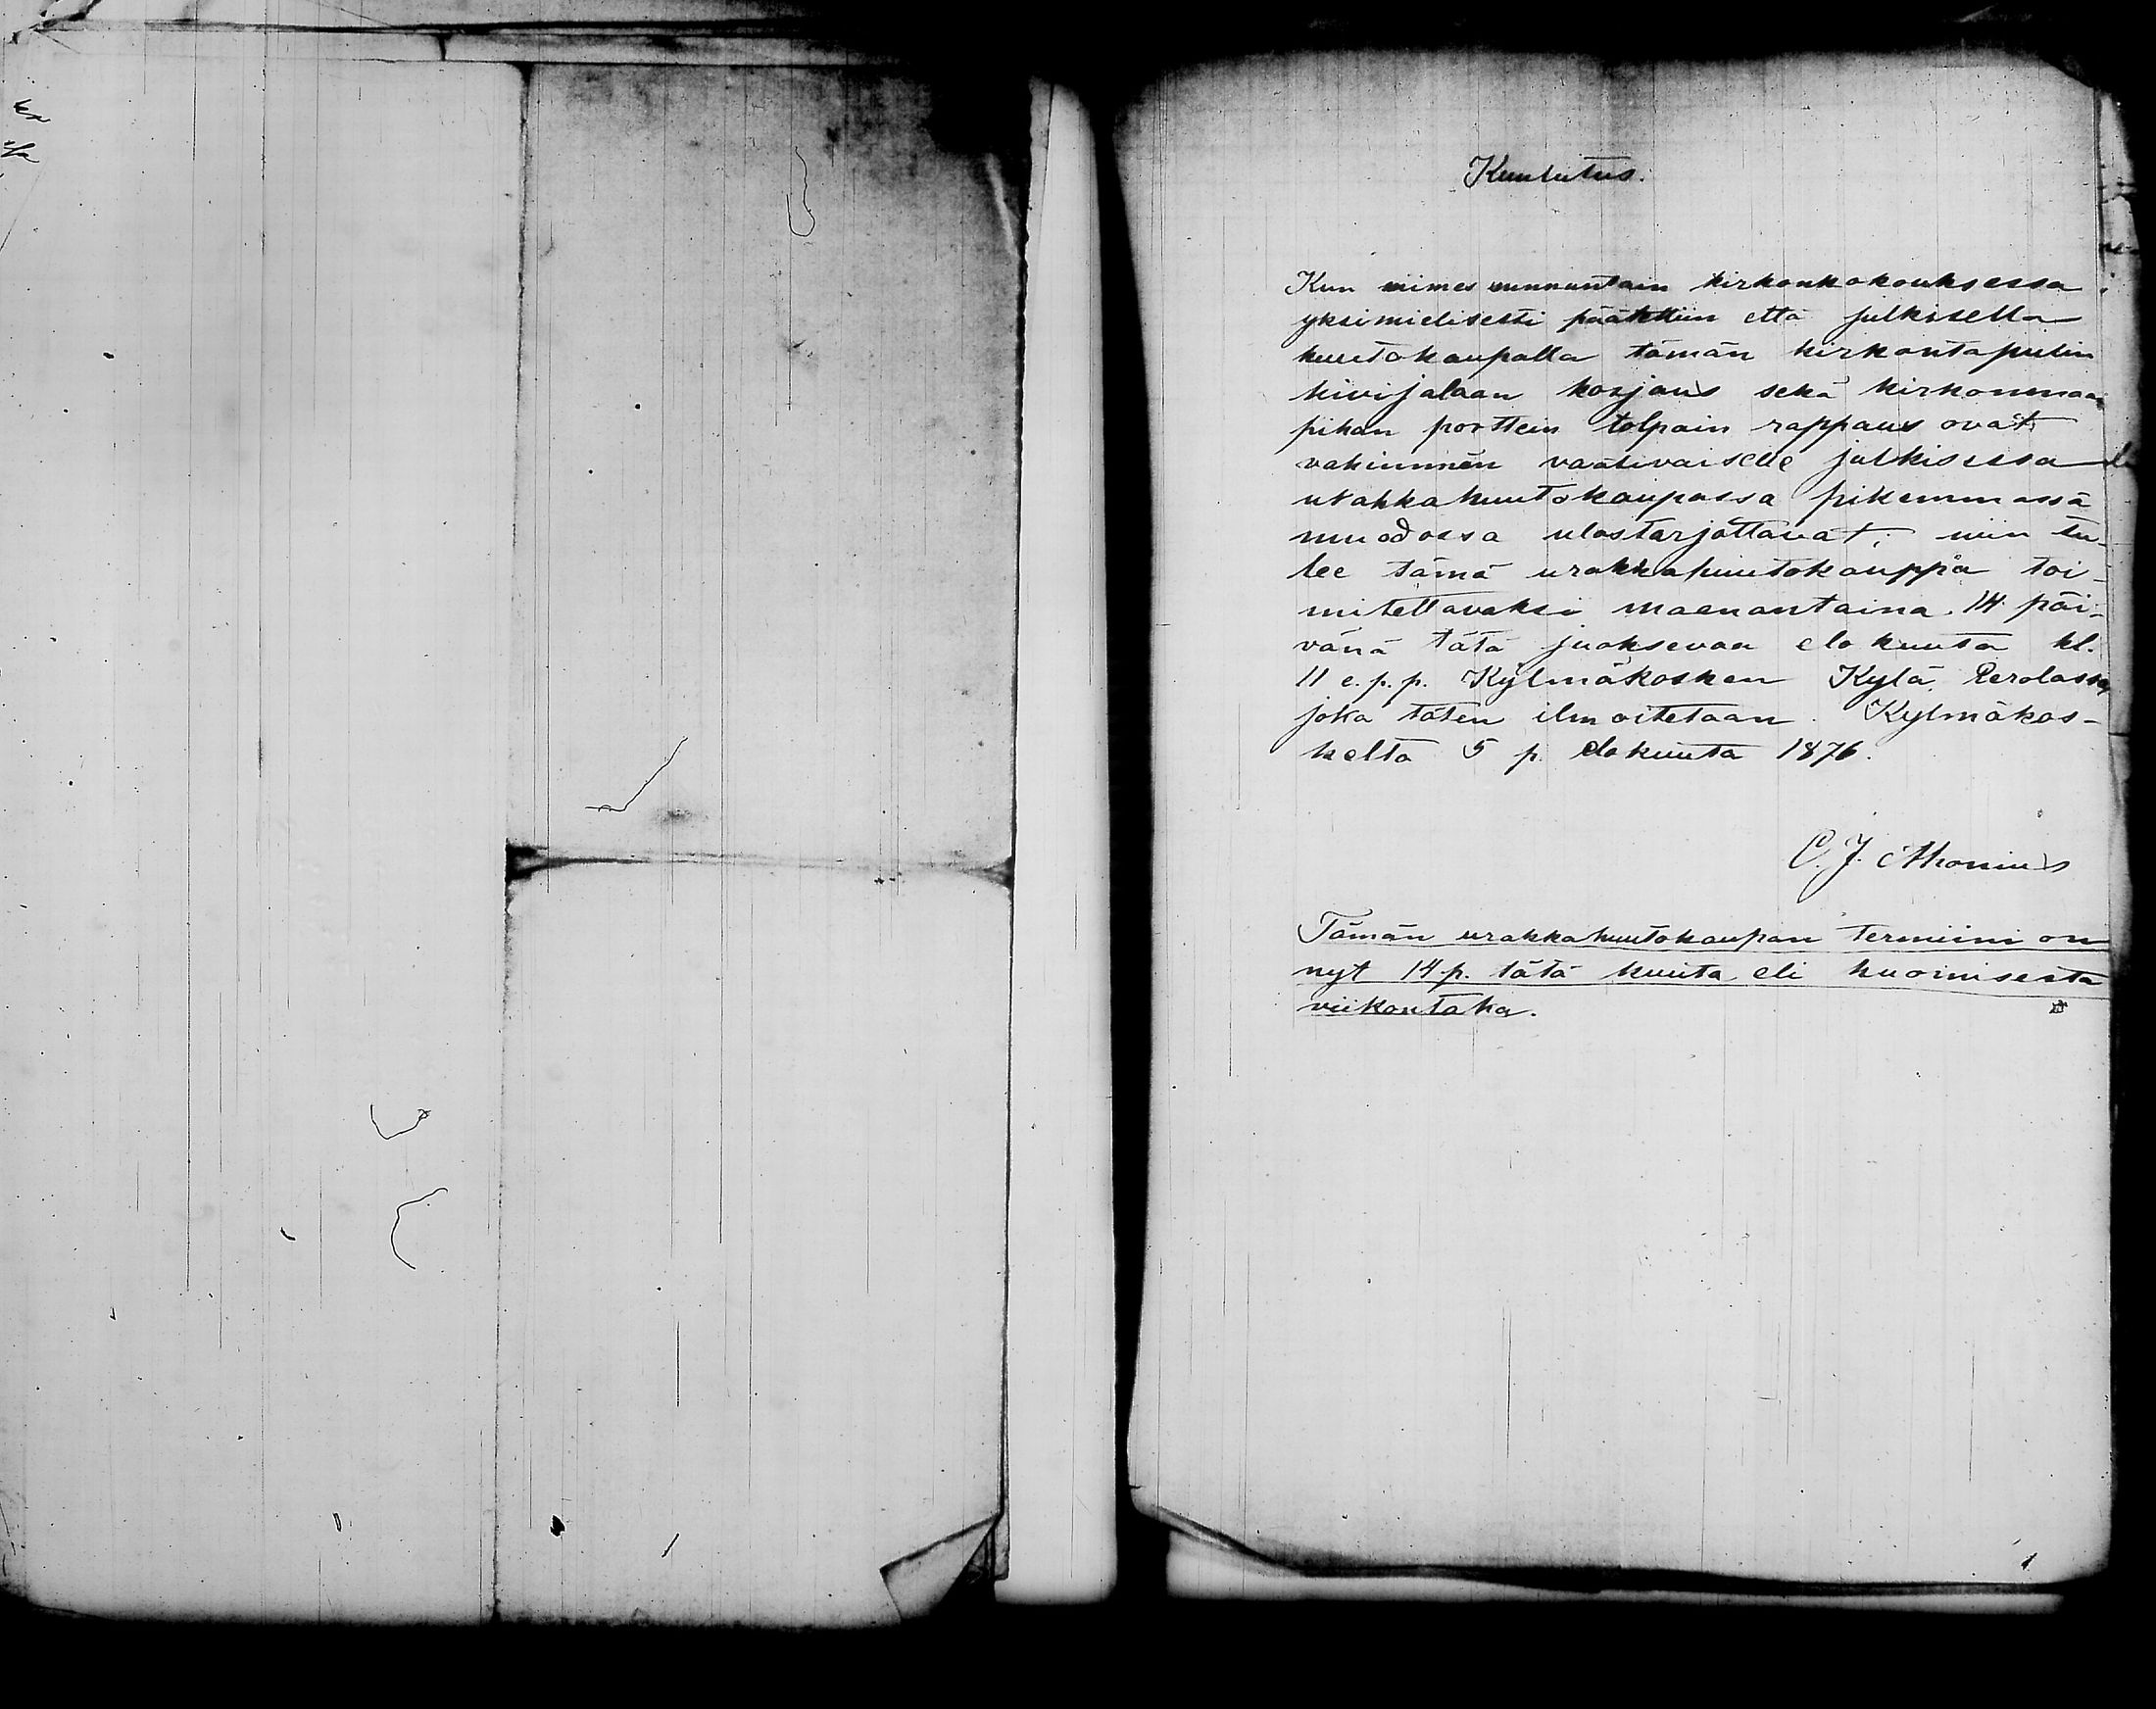 Kuulutus.
Kun viimes sunnuntain kirkonkokouksessa
yksimielisesti päätettiin että julkisella
huutokaupalla tämän kirkontapulin
kivijalaan korjaus sekä kirkonmaan
pihan porttein tolpain rappaus ovat
vähimmän vaativaiselle julkisessa
urakkahuutokaupassa pikemmässä
muodossa ulostarjottavat; niin tu-
lee tämä urakkahuutokauppa toi-
mitettavaksi maenantaina 14 päi-
vänä tätä juoksevaa elokuuta kl.
11 e. p. p. Kylmäkosken Kylä Perolassa,
joka täten ilmoitetaan. Kylmäkos-
kelta 5 p. elokuuta 1876.
C. J. Ahonius
Tämän urakkahuutokaupan termiini on
nyt 14 p. tätä kuuta eli huomisesta
viikontaka.